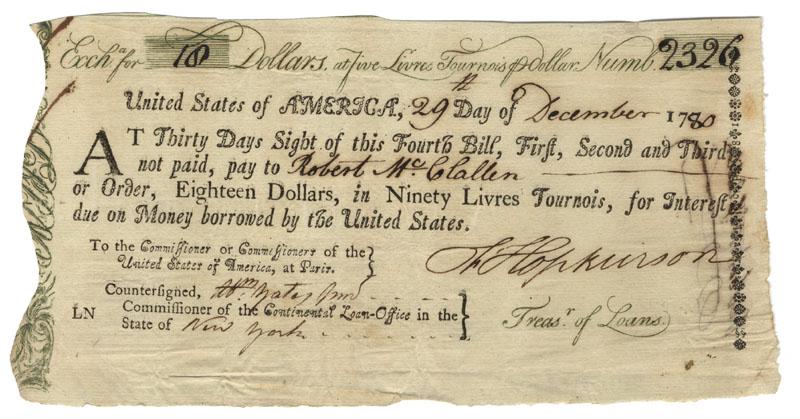 Exchª for 18 Dollars, at five Livres Tournois ⅌ Dollar Numb. 2326
United States of AMERICA, 29th Day of December 1780
AT Thirty Days Sight of this Fourth Bill, First, Second and Third
not paid, pay to Robert McClallen
or Order, Eighteen Dollars, in Ninety Livres Tournois, for Interest
due on Money borrowed by the United States.
To the Commissioner or Commissioners of the
United States of America, at Paris.
F Hopkinson
Treasr. of Loans.
Countersigned, Abm Yates Junr
LN Commissioner of the Continental Loan-Office in the
State of New York